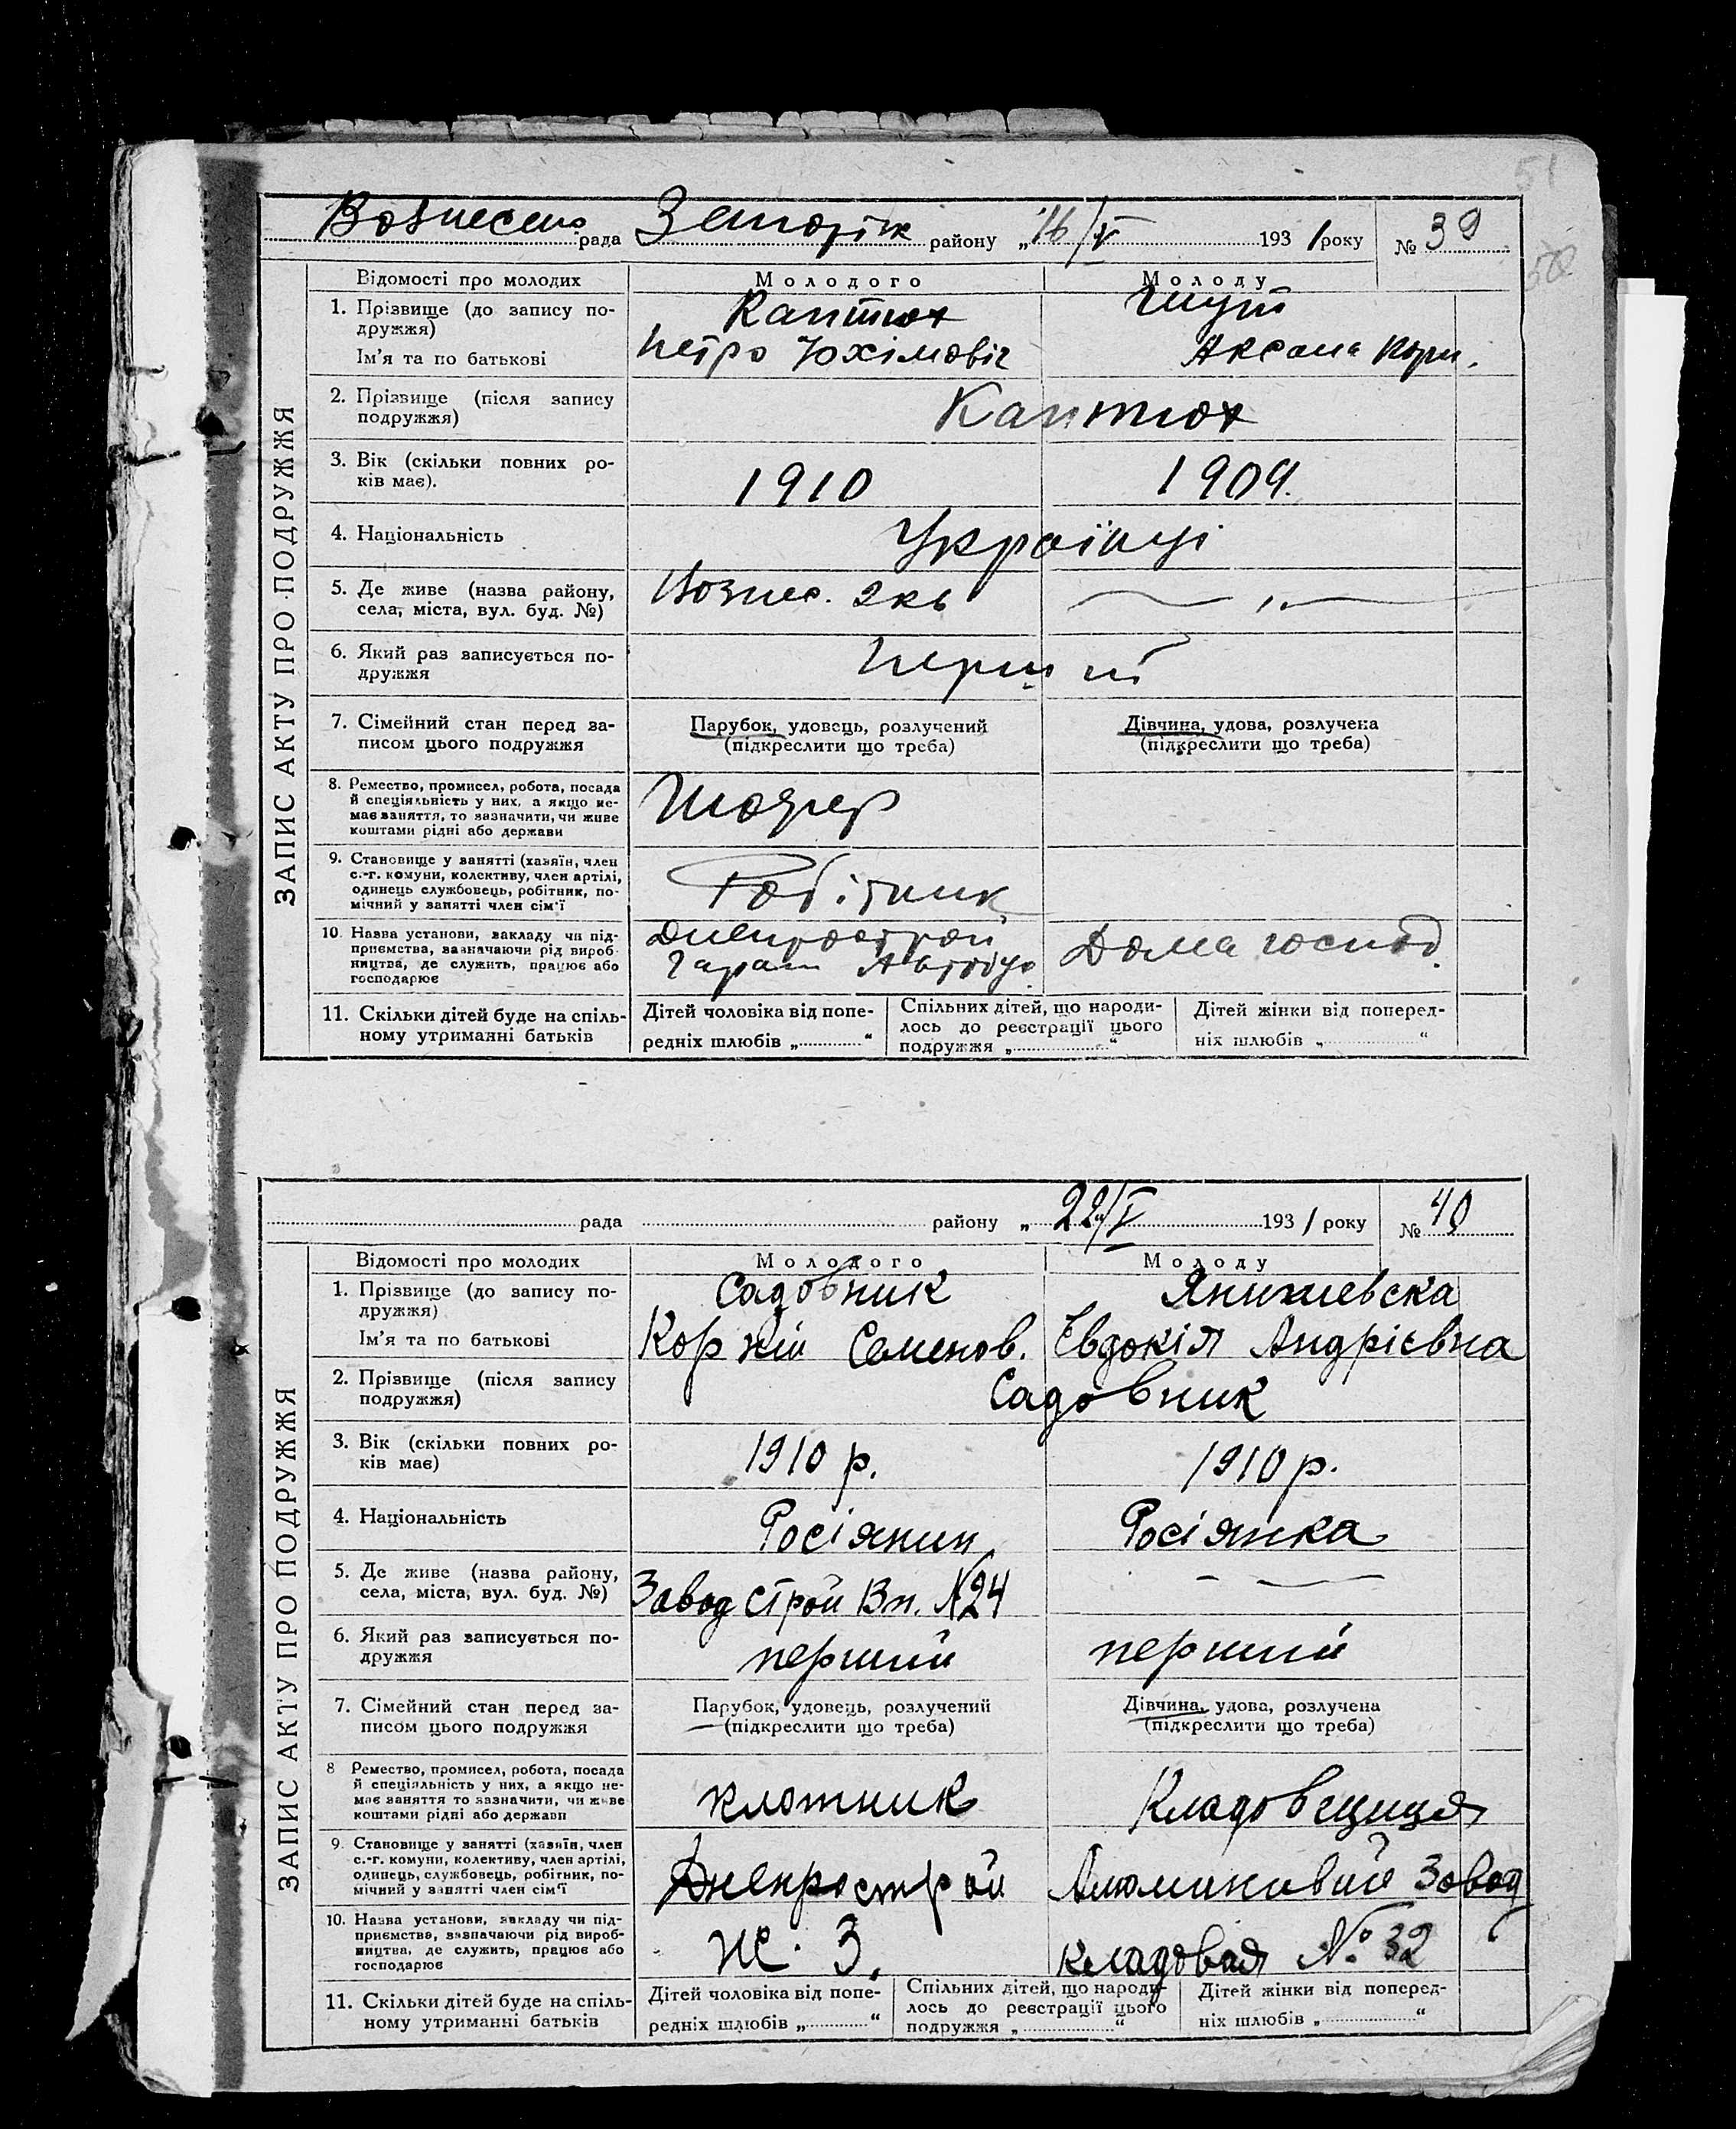 51
50
Вознесено рада Запоріж району „16/V 1931 року № 39
ЗАПИС АКТУ ПРО ПОДРУЖЖЯ
Відомості про молодих Молодого Молоду
1. Прізвище (до запису по-
дружжя)
Каптюх Шут
Ім'я та по батькові Петро Юхімовіч Аксана Корн.
2. Прізвище (після запису
подружжя)
Каптюх
3. Вік (скільки повних ро-
ків має).
1910 1909.
4. Національність Українці
5. Де живе (назва району,
села, міста, вул. буд. №)
Вознес. 2кв — „ —
6. Який раз записується по-
дружжя
Перший
7. Сімейний стан перед за-
писом цього подружжя
Парубок, удовець, розлучений
(підкреслити що треба)
Дівчина, удова, розлучена
(підкреслити що треба)
8. Ремество, промисел, робота, посада
й спеціяльність у них, а якщо не-
має заняття, то зазначити, чи живе
коштами рідні або держави
Шофер
9. Становище у занятті (хазяїн, член
с.-г. комуни, колективу, член артілі,
одинець службовець, робітник, по-
мічний у занятті член сім'ї
Робітник
10. Назва установи, закладу чи під-
приємства, зазначаючи рід вироб-
ництва, де служить, працює або
господарює
Днепрострой
Гараж
Дома господ.
11. Скільки дітей буде на спіль-
ному утриманні батьків
Дітей чоловіка від попе-
редніх шлюбів „ “
Спільних дітей, що народи-
лось до реєстрації цього
подружжя „ “
Дітей жінки від поперед-
ніх шлюбів „ “
рада району „22/V 1931 року № 40
ЗАПИС АКТУ ПРО ПОДРУЖЖЯ
Відомості про молодих Молодого Молоду
1. Прізвище (до запису по-
дружжя)
Садовник Янишевска
Ім'я та по батькові Коржій Семенов. Євдокія Андрієвна
2. Прізвище (після запису
подружжя)
Садовник
3. Вік (скільки повних ро-
ків має)
1910 р. 1910 р.
4. Національність Росіянин Росіянка
5. Де живе (назва району,
села, міста, вул. буд. №)
Завод строй Вп. №24 — —
6. Який раз записується по-
дружжя
перший перший
7. Сімейний стан перед за-
писом цього подружжя
Парубок, удовець, розлучений
(підкреслити що треба)
Дівчина, удова, розлучена
(підкреслити що треба)
8 Ремество, промисел, робота, посада
й спеціяльність у них, а якщо не-
має заняття то зазначити, чи живе
коштами рідні або держави
плотник Кладовщиця
9. Становище у занятті (хазяїн, член
с.-г. комуни, колективу, член артілі,
одинець, службовець, робітник, по-
мічний у занятті член сім'ї
Днепрострой Алюминовий Завод
10. Назва установи, закладу чи під-
приємства, зазначаючи рід вироб-
ництва, де служить, працює або
господарює
Ж. З. кладовая № 32
11. Скільки дітей буде на спіль-
ному утриманні батьків
Дітей чоловіка від попе-
редніх шлюбів „ “
Спільних дітей, що народи-
лось до реєстрації цього
подружжя „ “
Дітей жінки від поперед-
ніх шлюбів „ “